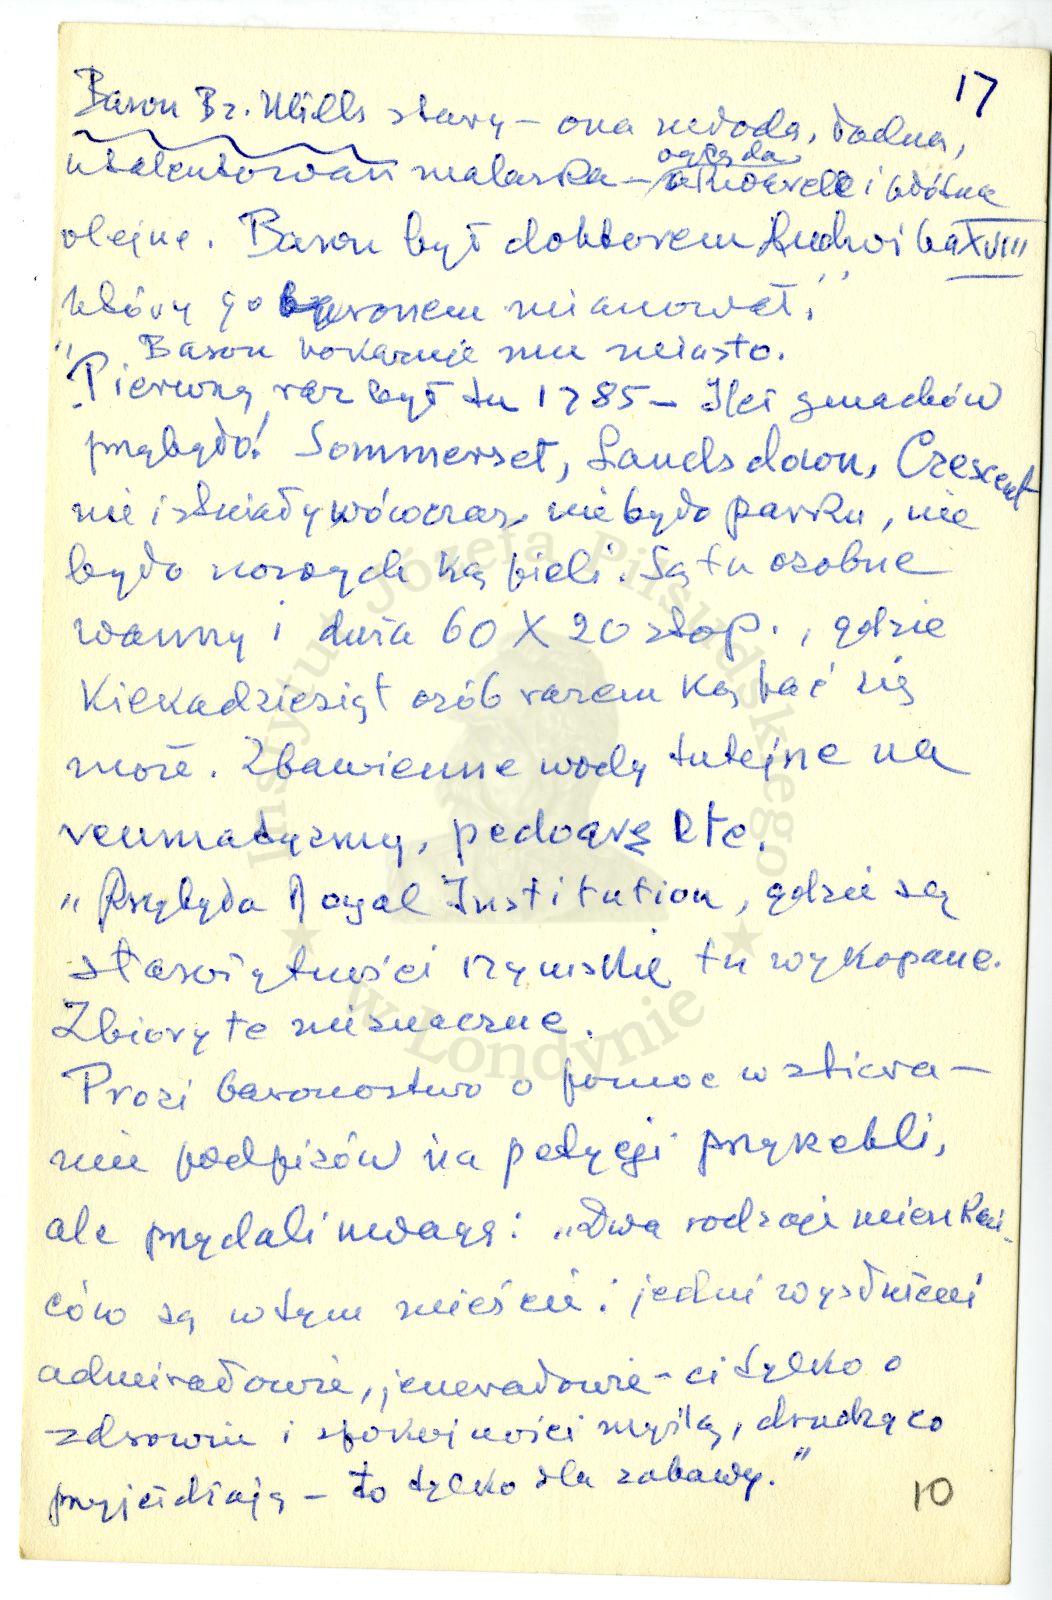 17
Baron Br. Mills stary – ona młoda, ładna,
utalentowan malarka – ogląda akwarele i płótna
olejne. Baron był doktorem Ludwika XVIII
który go baronem mianował."
Baron pokazuje mu miasto.
"Pierwszy raz był tu 1785 – Ileż gmachów
przybyło! Sommerset, Landsdown, Crescent
nie istniały wówczas, nie było parku, nie
było nowych kąpieli. Są tu osobne
wanny i duża 60 X 20 stop., gdzie
kilkadziesiąt osób razem kąpać się
może. Zbawienne wody tutejsze na
reumatyzmy, pedogrę etc.
"Przybyła Royal Institution, gdzie są
starożytności rzymskie tu wykopane.
Zbiory te nieznaczne.
Prosi baronostwo o pomoc w zbiera-
niu podpisów na petycji przyrzekli,
ale przydali uwagę: "Dwa rodzaje mieszkań-
ców są w tym mieście: jedni wysłużeni
admirałowie, jenerałowie – ci tylko o
zdrowiu i spokojności myślą, drudzy co
przyjeżdżają – to tylko dla zabawy."
10
Instytut Józefa Piłsudskiego
w Londynie